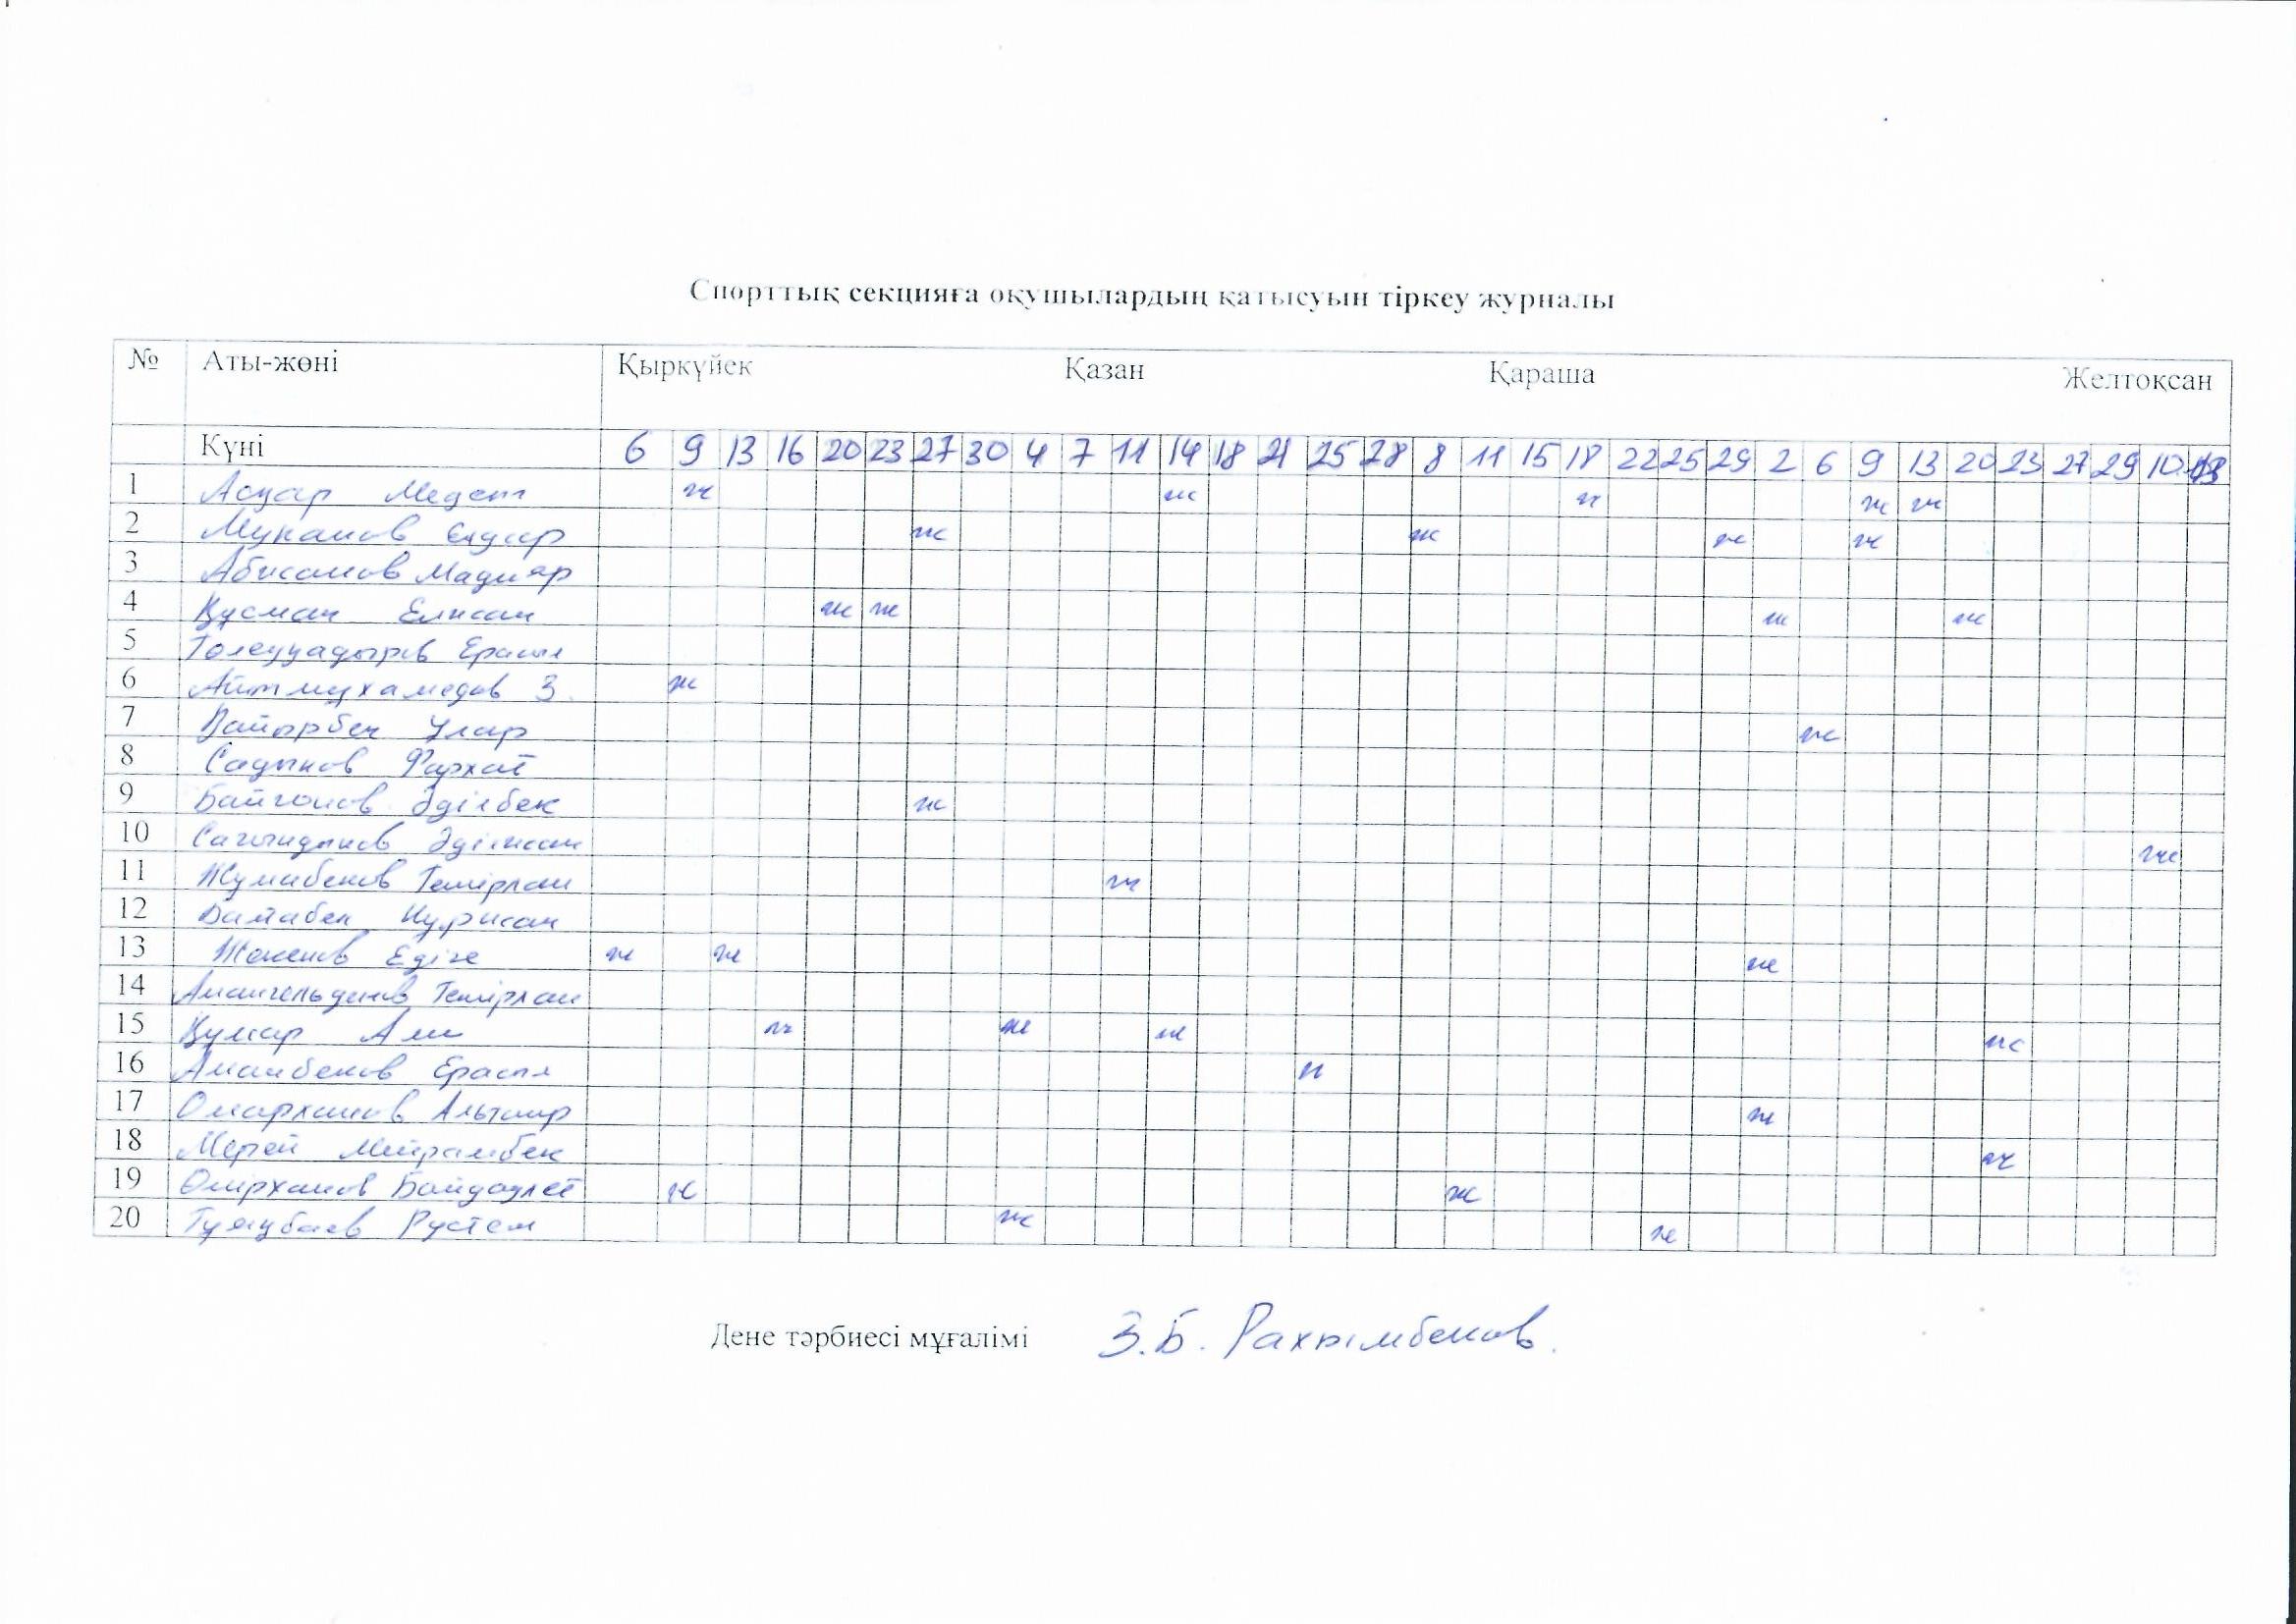 Спорттық секцияға оқушылардың қатысуын тіркеу журналы
№ Аты-жөні Қыркүйек Қазан Қараша Желтоқсан
Күні 6 9 13 16 20 23 27 30 4 7 11 14 18 21 25 28 8 11 15 18 22 25 29 2 6 9 13 20 23 27 29 10
1 Асқар Медет ж ж ж ж ж
2 Муканов Елдар ж ж ж ж
3 Абисанов Мадияр
4 Құсман Елжан ж ж ж ж
5 Төлеуқадыров Ерасыл
6 Айтмұхамедов З. ж
7 Ұлар ж
8 Садыков Фархат
9 Байғонов Әділбек ж
10 Сағындыков Әділжан ж
11 Жумабеков Темірлан ж
12 Нұржан
13 Жөкенов Едіге ж ж ж
14 Амангельдинов Темірлан
15 Құмар Али ж ж ж ж
16 Аманбеков Ерасыл ж
17 Омарханов Альтаир ж
18 Мерей Мейрамбек ж
19 Өмірханов Байдәулет ж ж
20 Рустем ж ж
Дене тәрбиесі мұғалімі З.Б. Рахымбеков.